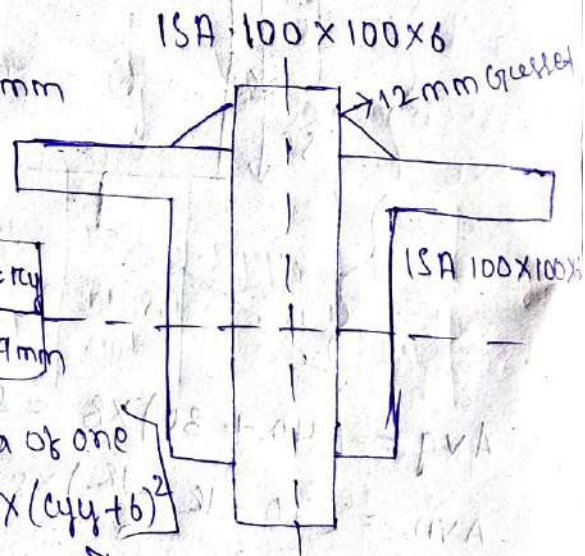 ISA 100 x 100 x 6
mm
12 mm Gusset
ISA 100X100X
9 mm
a of one
x (Cyy + 6)²